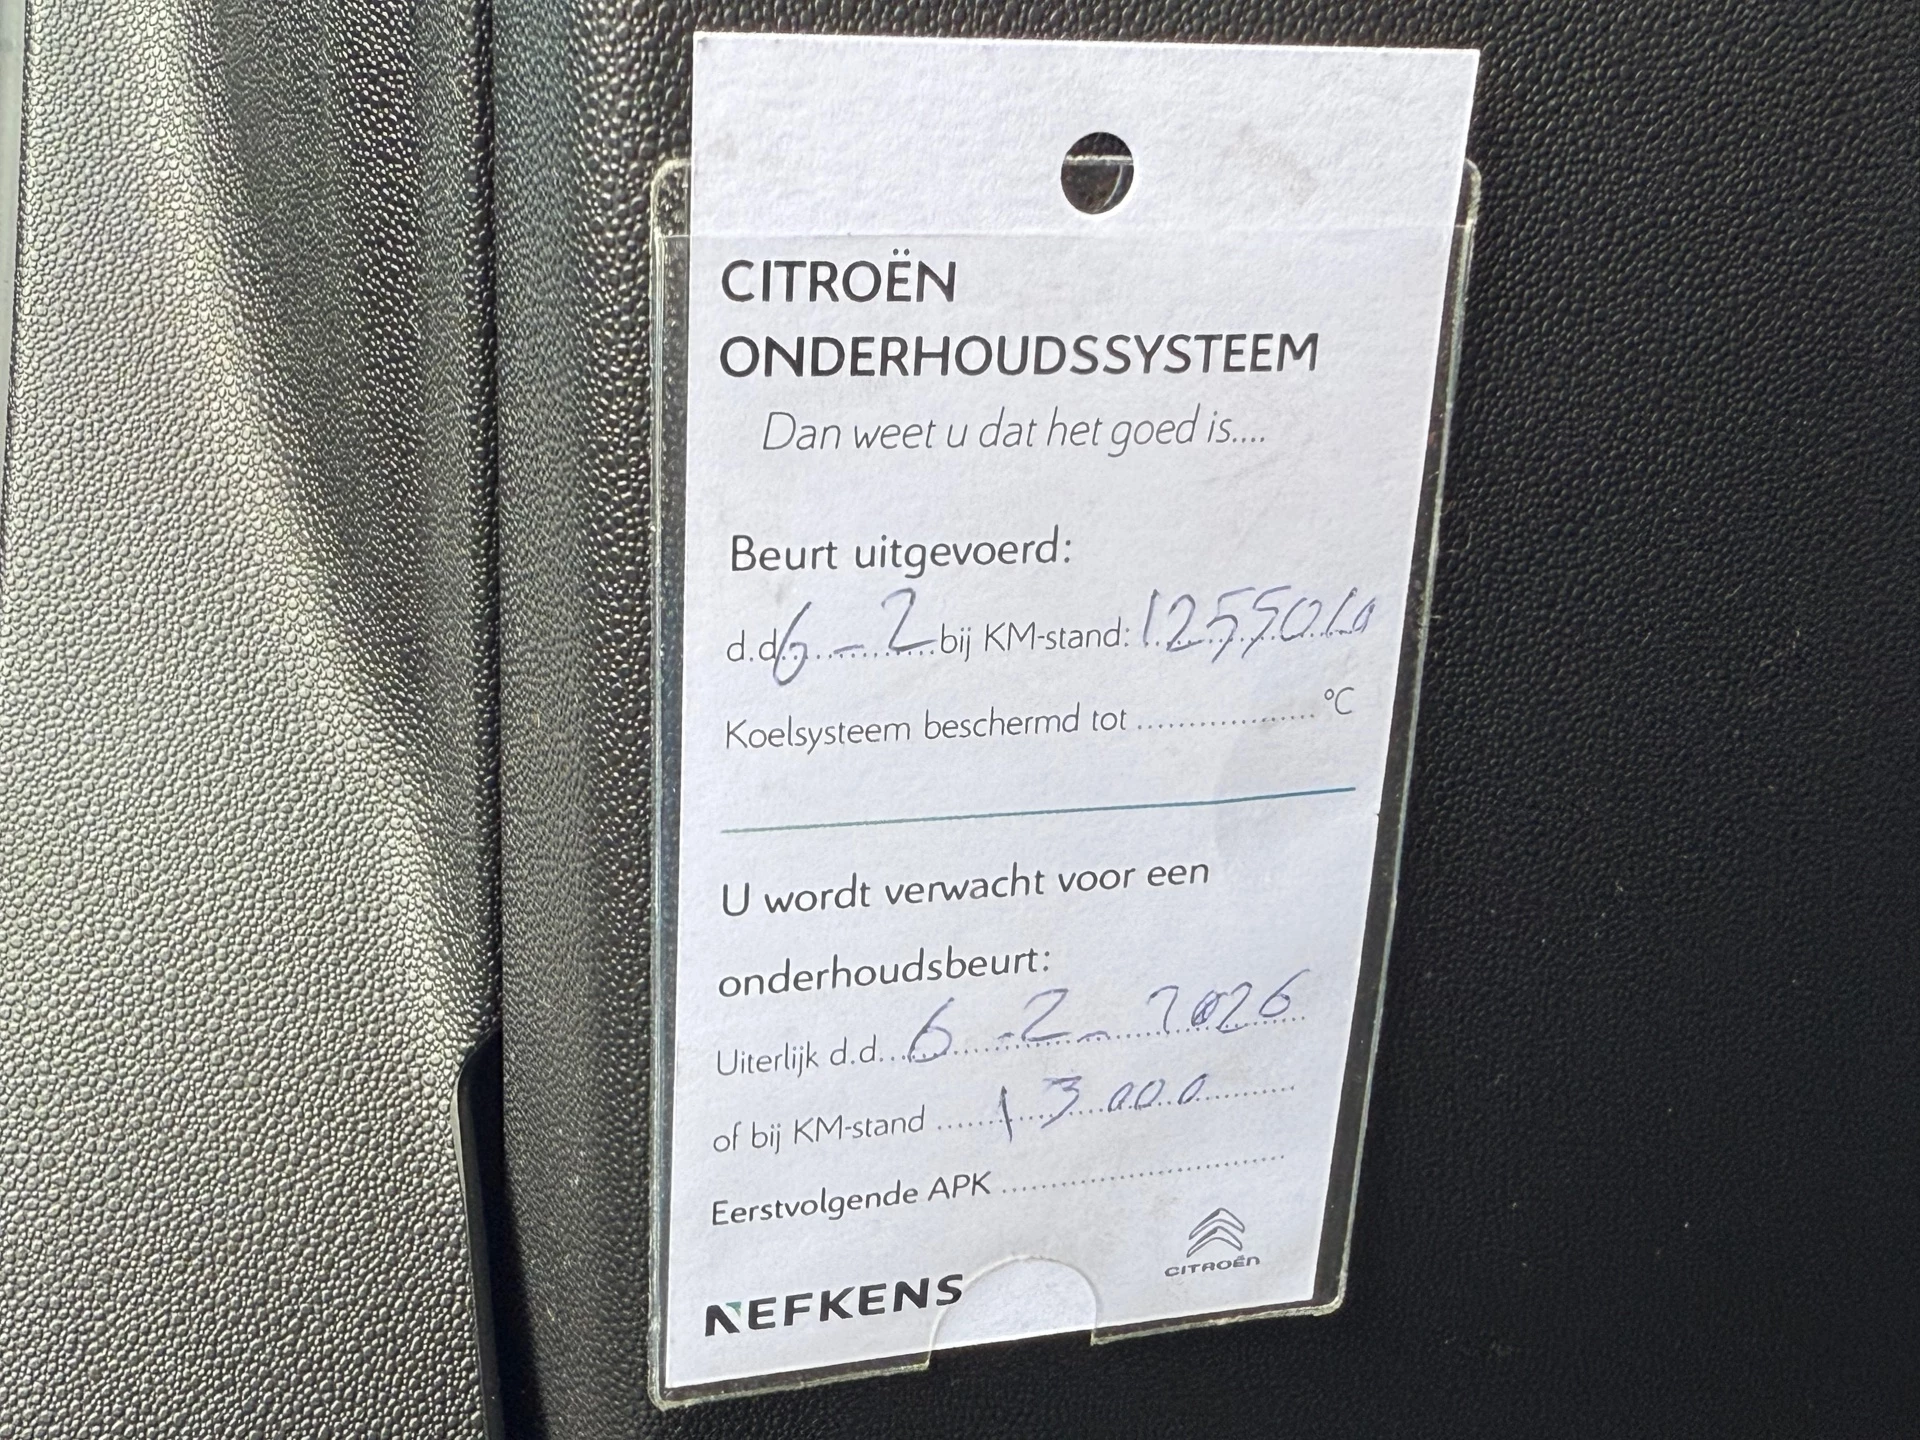 CITROËN
ONDERHOUDSSYSTEEM
Dan weet u dat het goed is....
Beurt uitgevoerd:
d.d. 6 - 2 bij KM-stand: 12550
Koelsysteem beschermd tot .................. °C
U wordt verwacht voor een
onderhoudsbeurt:
Uiterlijk d.d. 6 - 2 - 2026
of bij KM-stand 13000
Eerstvolgende APK ..............................
CITROËN
NEFKENS